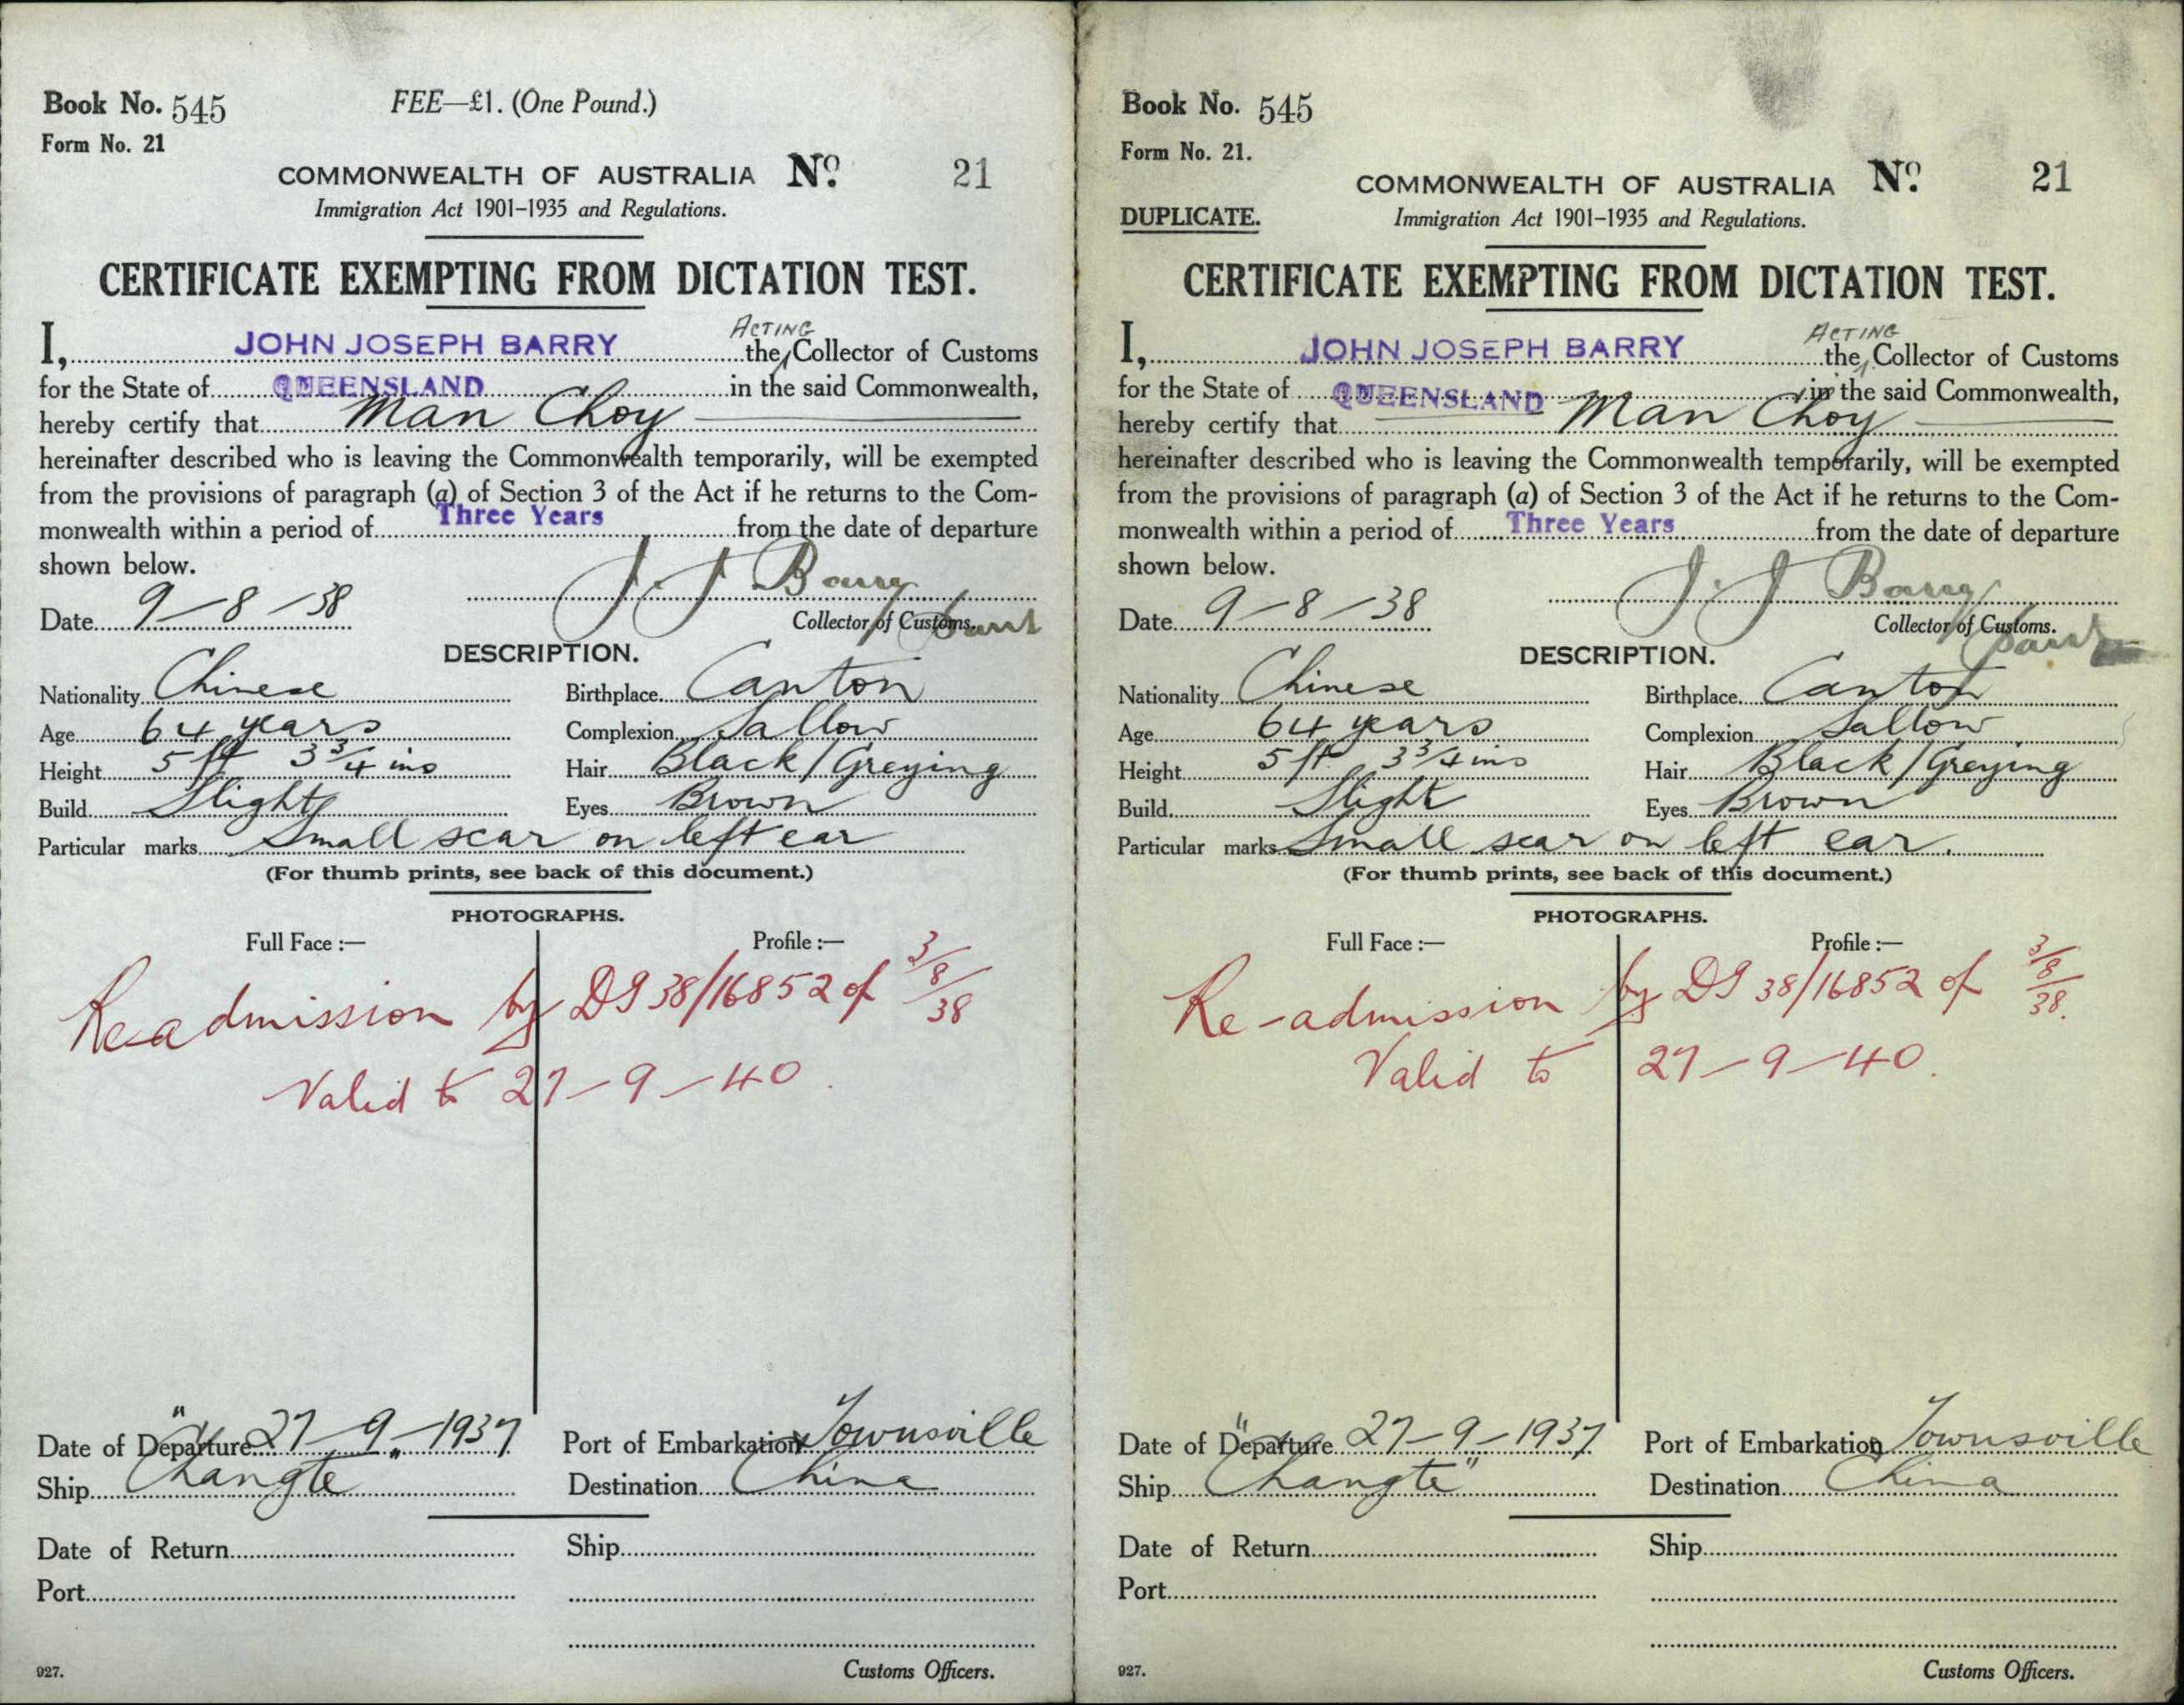 Book No. 545
FEE—£1. (One Pound.)
Form No. 21
COMMONWEALTH OF AUSTRALIA No. 21
Immigration Act 1901–1935 and Regulations.
CERTIFICATE EXEMPTING FROM DICTATION TEST.
I, JOHN JOSEPH BARRY the ACTING Collector of Customs
for the State of QUEENSLAND in the said Commonwealth,
hereby certify that Man Choy
hereinafter described who is leaving the Commonwealth temporarily, will be exempted
from the provisions of paragraph (a) of Section 3 of the Act if he returns to the Com-
monwealth within a period of Three Years from the date of departure
shown below.
J. J Barry
Date 9–8–38
Collector of Customs.
DESCRIPTION.
Nationality Chinese Birthplace Canton
Age 64 years Complexion Sallow
Height 5 ft 3 3/4 ins Hair Black/Greying
Build Slight Eyes Brown
Particular marks Small scar on left ear
(For thumb prints, see back of this document.)
PHOTOGRAPHS.
Full Face :— Profile :—
Re-admission by DS 38/16852 of 3/8/38
Valid to 27–9–40.
Date of Departure 27–9–1937 Port of Embarkation Townsville
Ship "Changte" Destination China
Date of Return Ship
Port
927. Customs Officers.
Book No. 545
Form No. 21.
COMMONWEALTH OF AUSTRALIA No. 21
DUPLICATE.
Immigration Act 1901–1935 and Regulations.
CERTIFICATE EXEMPTING FROM DICTATION TEST.
I, JOHN JOSEPH BARRY the ACTING Collector of Customs
for the State of QUEENSLAND in the said Commonwealth,
hereby certify that Man Choy
hereinafter described who is leaving the Commonwealth temporarily, will be exempted
from the provisions of paragraph (a) of Section 3 of the Act if he returns to the Com-
monwealth within a period of Three Years from the date of departure
shown below.
J. J Barry
Date 9–8–38
Collector of Customs.
DESCRIPTION.
Nationality Chinese Birthplace Canton
Age 64 years Complexion Sallow
Height 5 ft 3 3/4 ins Hair Black/Greying
Build Slight Eyes Brown
Particular marks Small scar on left ear.
(For thumb prints, see back of this document.)
PHOTOGRAPHS.
Full Face :— Profile :—
Re-admission by DS 38/16852 of 3/8/38.
Valid to 27–9–40.
Date of Departure 27–9–1937 Port of Embarkation Townsville
Ship "Changte" Destination China
Date of Return Ship
Port
927. Customs Officers.